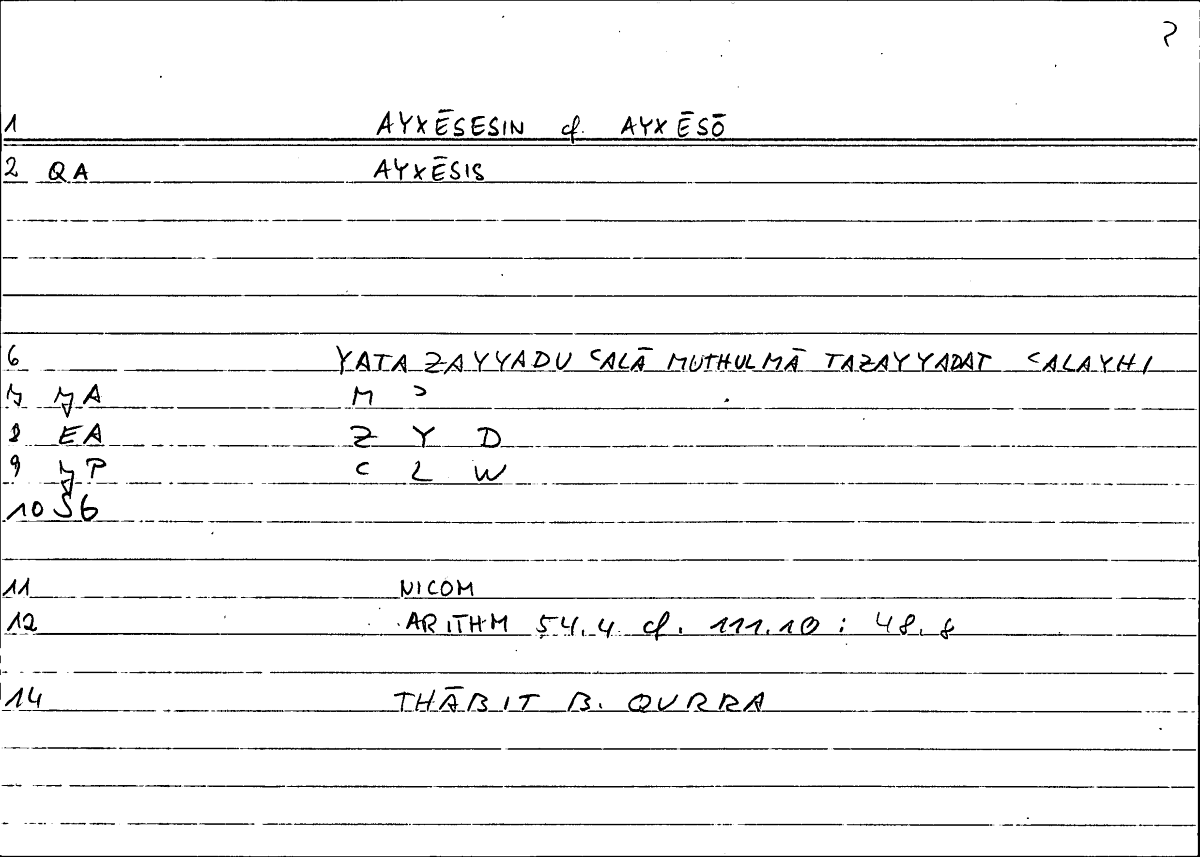 ?
1 AYXĒSESIN cf. AYXĒSŌ
2 QA AYXĒSIS
6 YATA ZAYYADU ʿALĀ MUTHULMĀ TAZAYYADAT ʿALAYHI
7 A M ʾ
8 EA Z Y D
9 P ʿ L W
10 SG
11 NICOM
12 ARITHM 54.4 cf. 111.10 : 48.8
14 THĀBIT B. QURRA